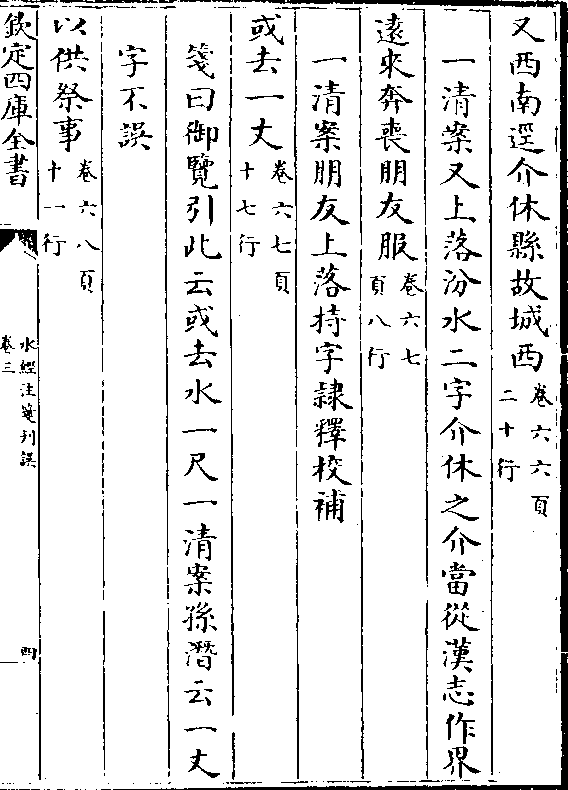 又西南逕介休縣故城西卷六六頁二十行
一清案又上落汾水二字介休之介當從漢志作界
遠來奔喪朋友服卷六七頁八行
一清案朋友上落持字隸釋校補
或去一丈卷六七頁十七行
箋曰御覽引此云或去水一尺一清案孫潛云一丈
字不誤
以供祭事卷六八頁十一行
欽定四庫全書
水經注箋刊誤
卷三
四